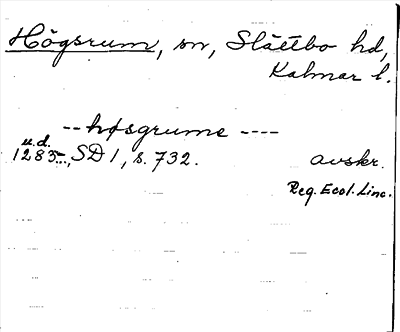 Högsrum, sn, Slättbo hd,
Kalmar l.
-- høsgrume ----
u.d.
1285-..., SD 1, s. 732. avskr.
Reg. Eccl. Linc.